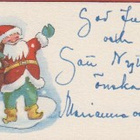 God Ju
och
Gott Nytt
önska
Marianne